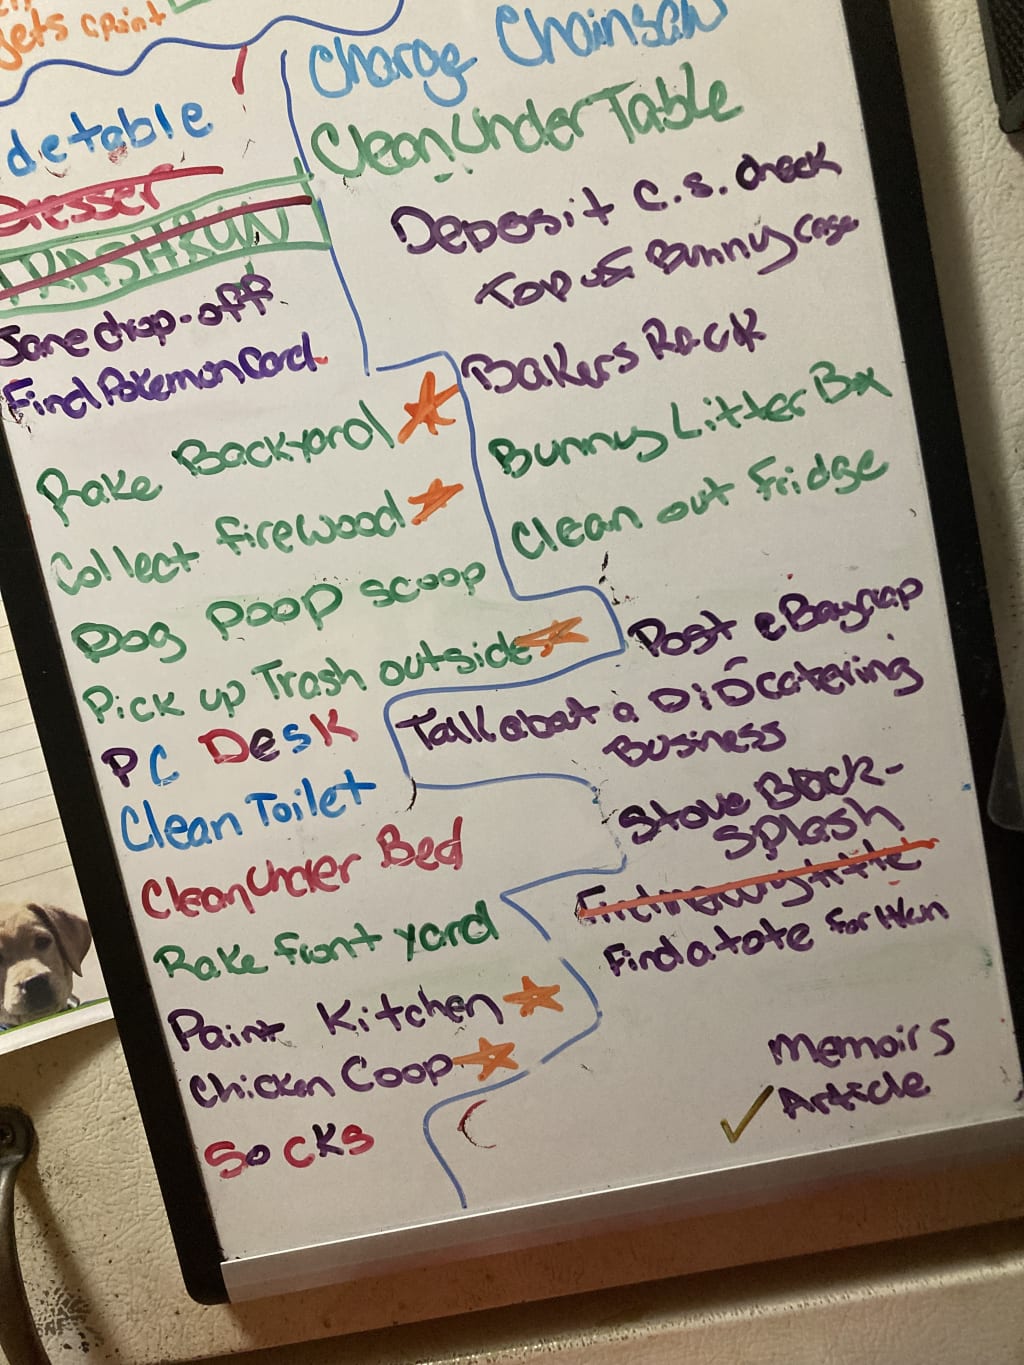 gets a point
de table
Dresser
TRASH RUN
Jane drop-off
Find Pokemon Card
Rake Backyard
Collect firewood
Dog Poop scoop
Pick up Trash outside
PC Desk
Clean Toilet
Clean Under Bed
Rake front yard
Paint Kitchen
Chicken Coop
Socks
Charge Chainsaw
Clean Under Table
Deposit C.S. check
Top of Bunny cage
Bakers Rack
Bunny Litter Box
Clean out fridge
Post eBay crap
Talk abat a DiDcatering
Business
Stove Back-
Splash
Find a tote for
Memoirs
Article